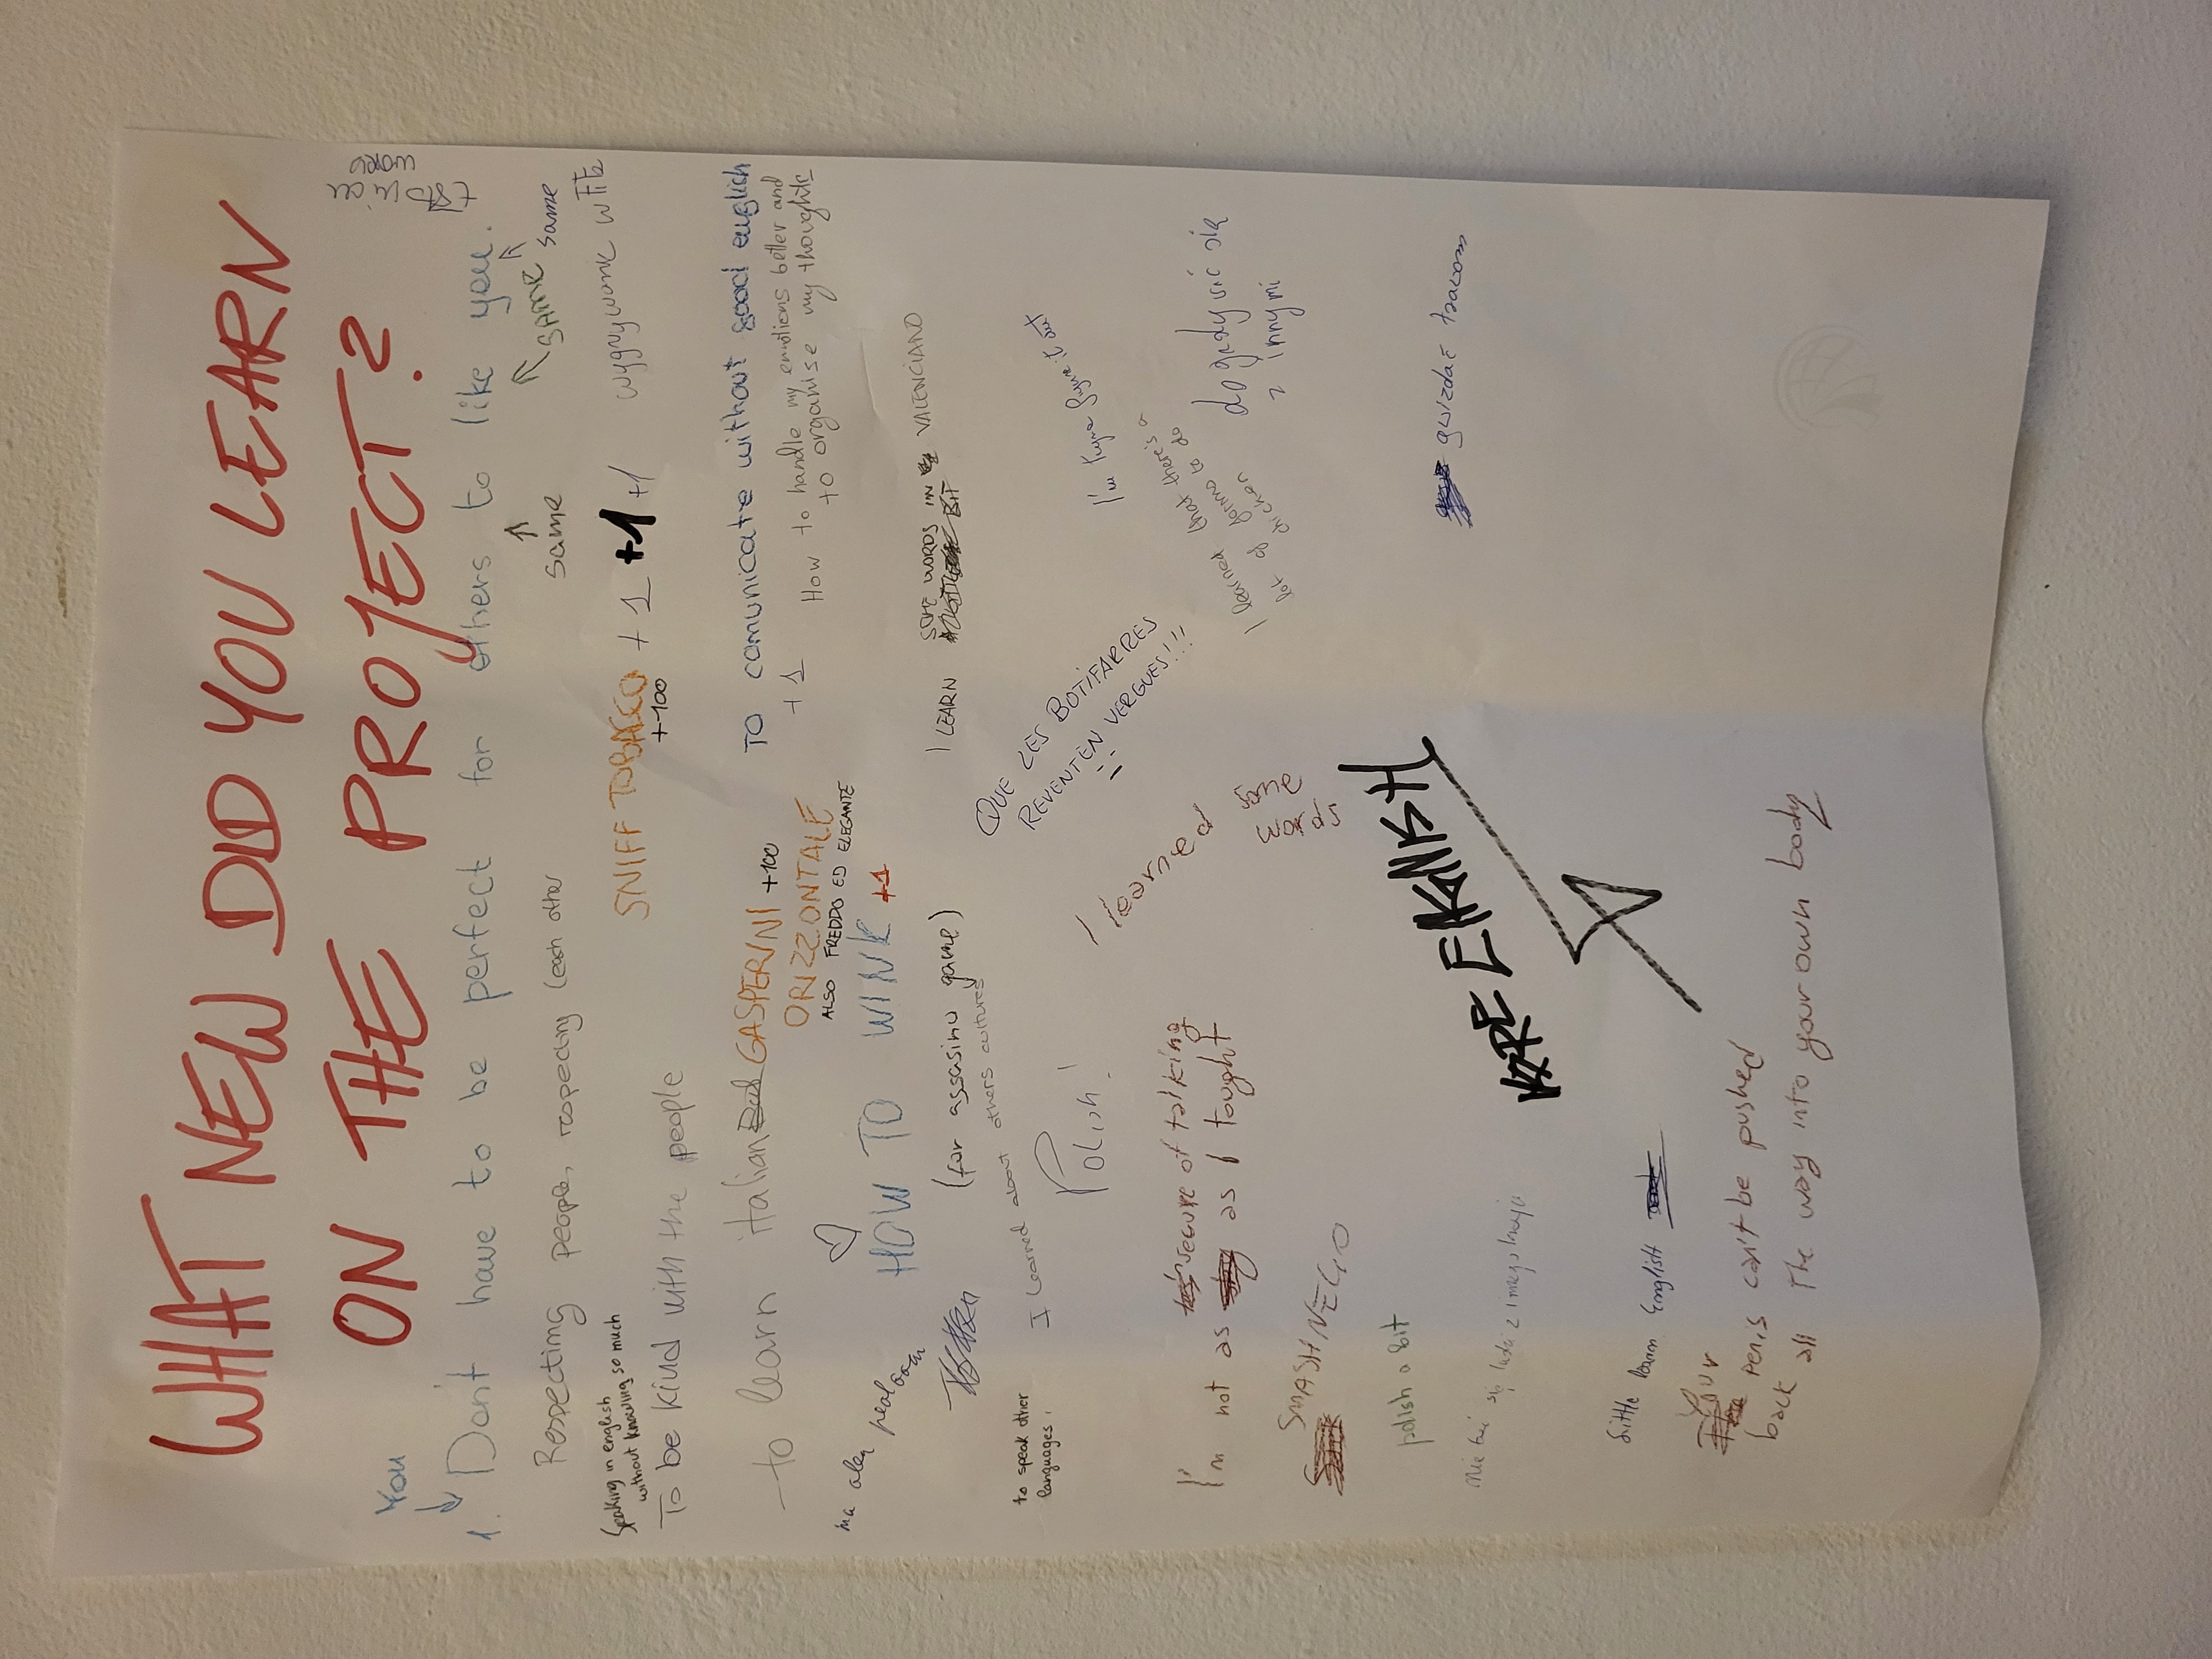 WHAT NEW DID YOU LEARN
ON THE PROJECT?
You
1. Don't have to be perfect for others to like you.
same
SAME
same
Respecting people, respecting each other
Speaking in english
without knowing so much
SNIFF TOBACCO +1 +1 +1
+100
To be kind with the people
to learn italian GASPERINI +100
ORIZZONTALE
ALSO FREDDO ED ELEGANTE
TO comunicate without good english
+1
How to handle my emotions better and
to organise my thoughts
HOW TO WINK +1
(for assasino game)
I LEARN SOME WORDS IN VALENCIANO
BIT
to speak other
languages!
I learned about others cultures
Polish!
QUE LES BOTIFARRES
REVENTEN VERGUES!!!
I learned
some
words
I learned that there's a
lot of forms to go
dogadywać się
z innymi
I'm not as secure of talking
as I tought
SMASH
polish a bit
gwizdać
little bit english
Your penis can't be pushed
back all The way into your own body